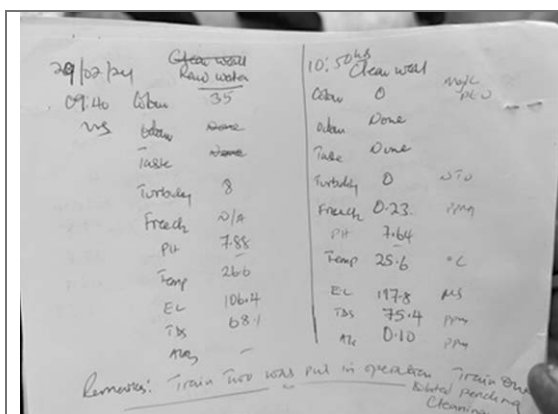 29/02/24
Clear well
Raw water
09:40 Colour 35
Odour None
Taste None
Turbidity 8
N/A
PH 7.88
Temp 26.6
EC 106.4
TDS 68.1
10:50hrs
Clear well
Colour 0 mg/L Pt
Odour None
Taste None
Turbidity 0 NTU
0.23 ppm
PH 7.64
Temp 25.6 °C
EC 197.8 µs
TDS 75.4 ppm
0.10 ppm
Remarks: Train Two was put in operation Train One
pending
Cleaning